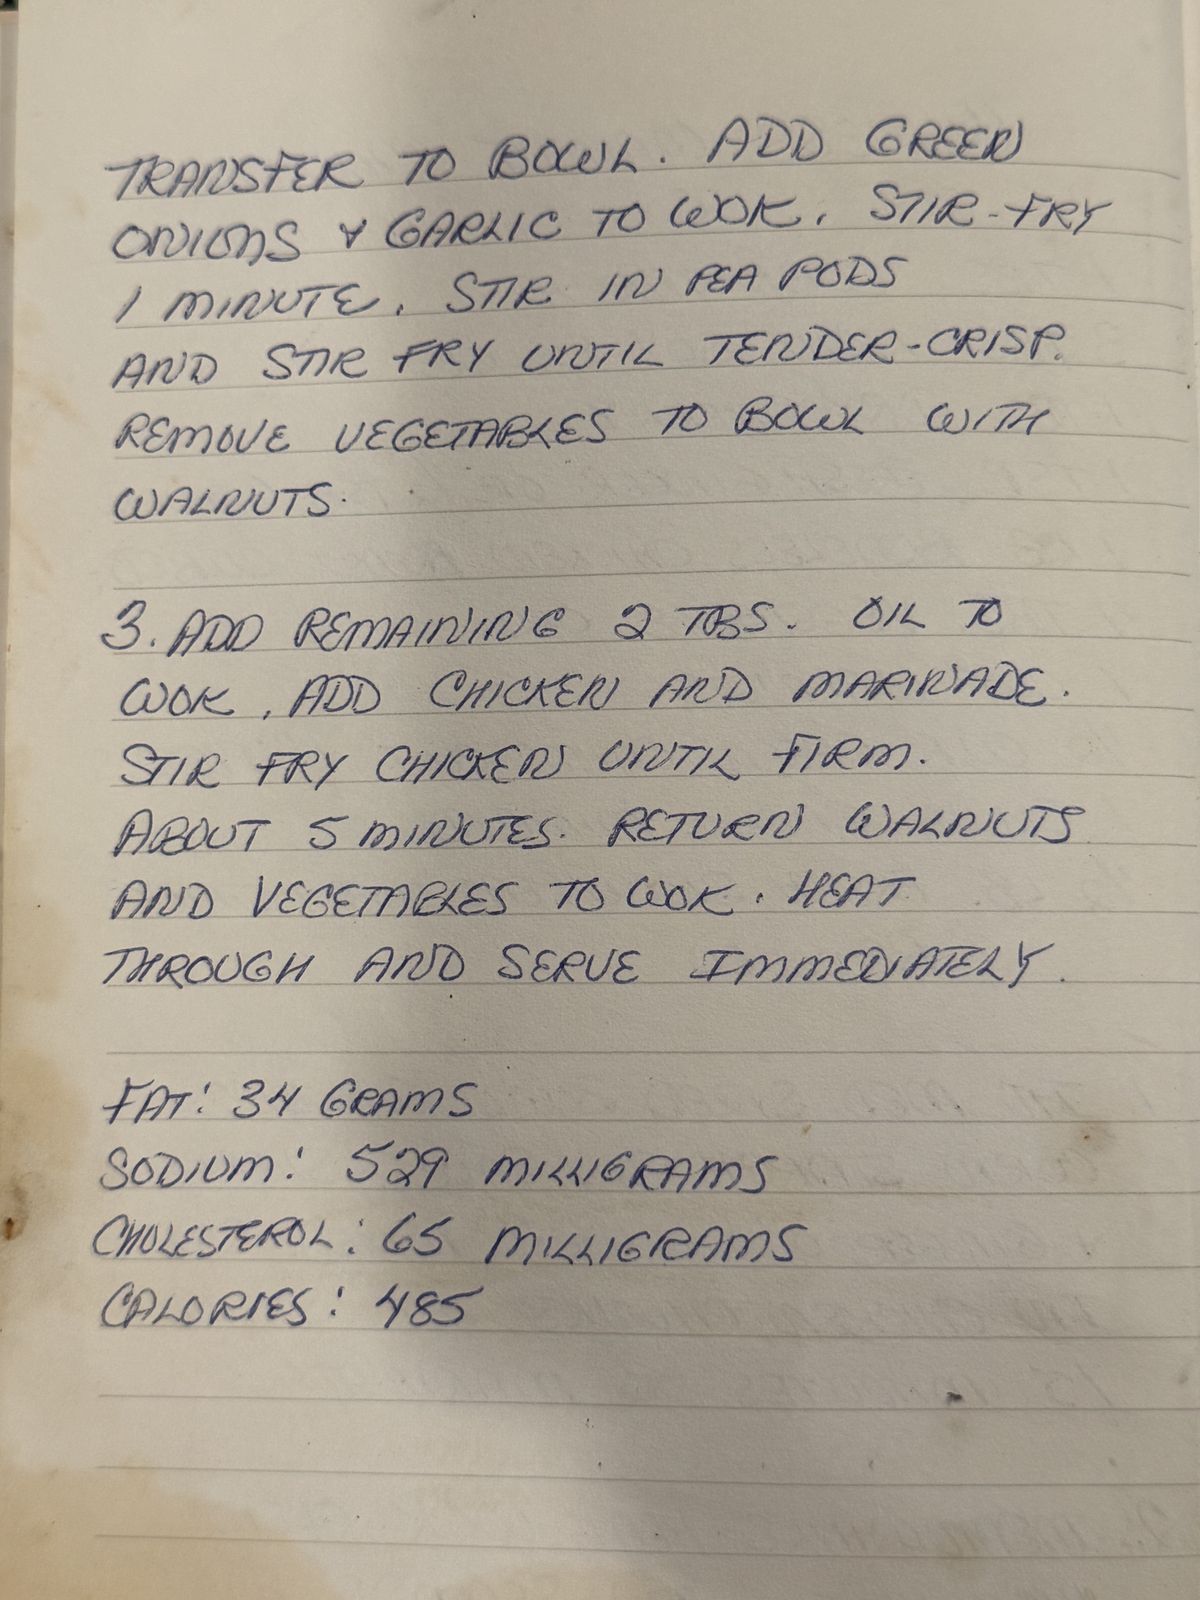 TRANSFER TO BOWL. ADD GREEN
ONIONS & GARLIC TO WOK. STIR-FRY
1 MINUTE. STIR IN PEA PODS
AND STIR FRY UNTIL TENDER-CRISP.
REMOVE VEGETABLES TO BOWL WITH
WALNUTS.
3. ADD REMAINING 2 TBS. OIL TO
WOK. ADD CHICKEN AND MARINADE.
STIR FRY CHICKEN UNTIL FIRM.
ABOUT 5 MINUTES. RETURN WALNUTS
AND VEGETABLES TO WOK. HEAT
THROUGH AND SERVE IMMEDIATELY.
FAT: 34 GRAMS
SODIUM: 529 MILLIGRAMS
CHOLESTEROL: 65 MILLIGRAMS
CALORIES: 485